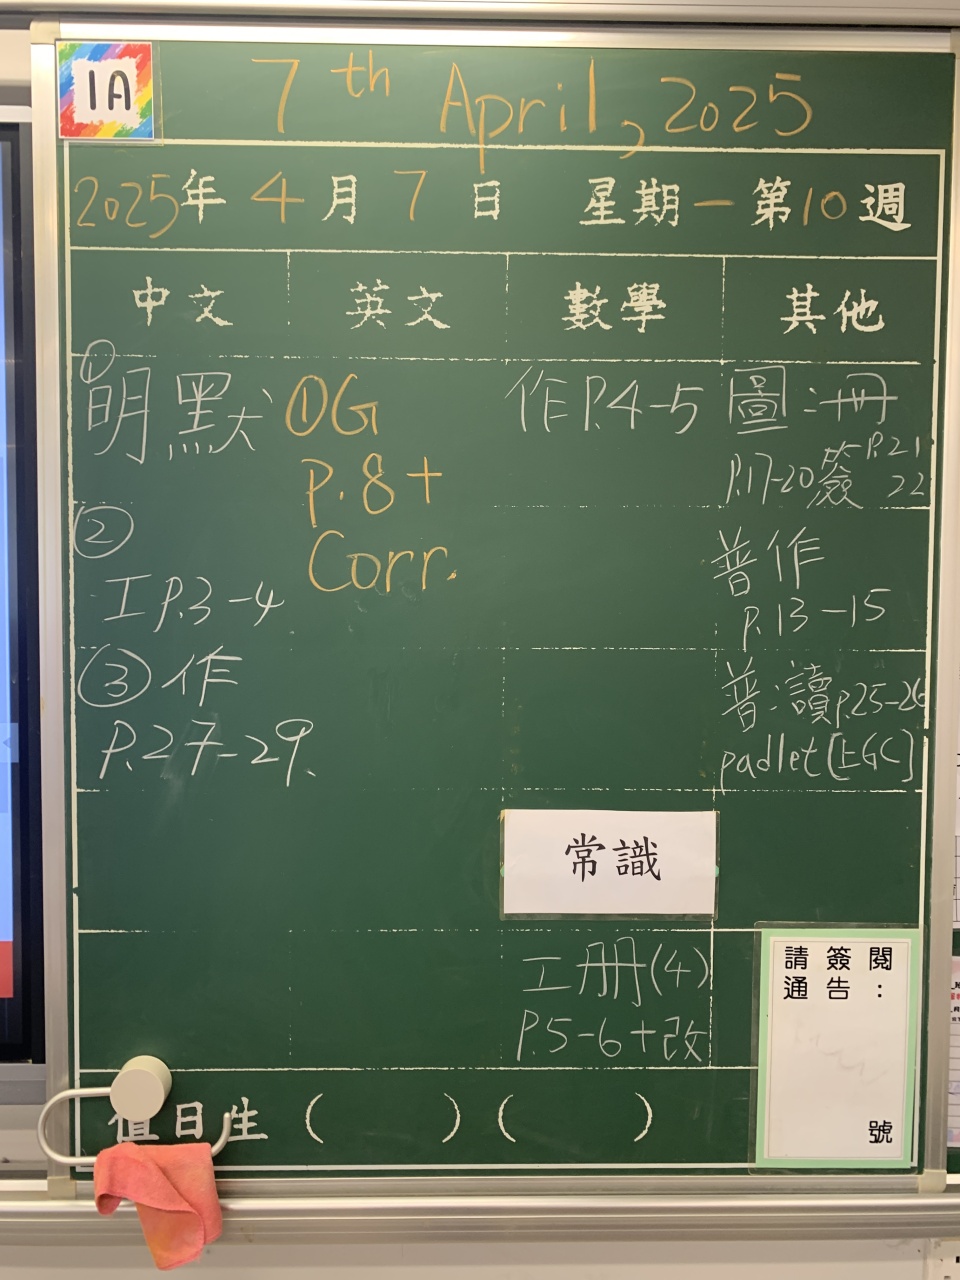 1A
7th April, 2025
2025年 4月 7日 星期一 第10週
中文 英文 數學 其他
① 明默
②
工P.3-4
③ 作
P.27-29.
①G
P.8+
Corr.
作P.4-5
圖:冊
P.17-20簽 P.21
22
普作
P.13-15
普:讀p.25-26
padlet[上GC]
常識
工冊(4)
P.5-6+改
請簽閱
通告:
號
值日生 ( ) ( )